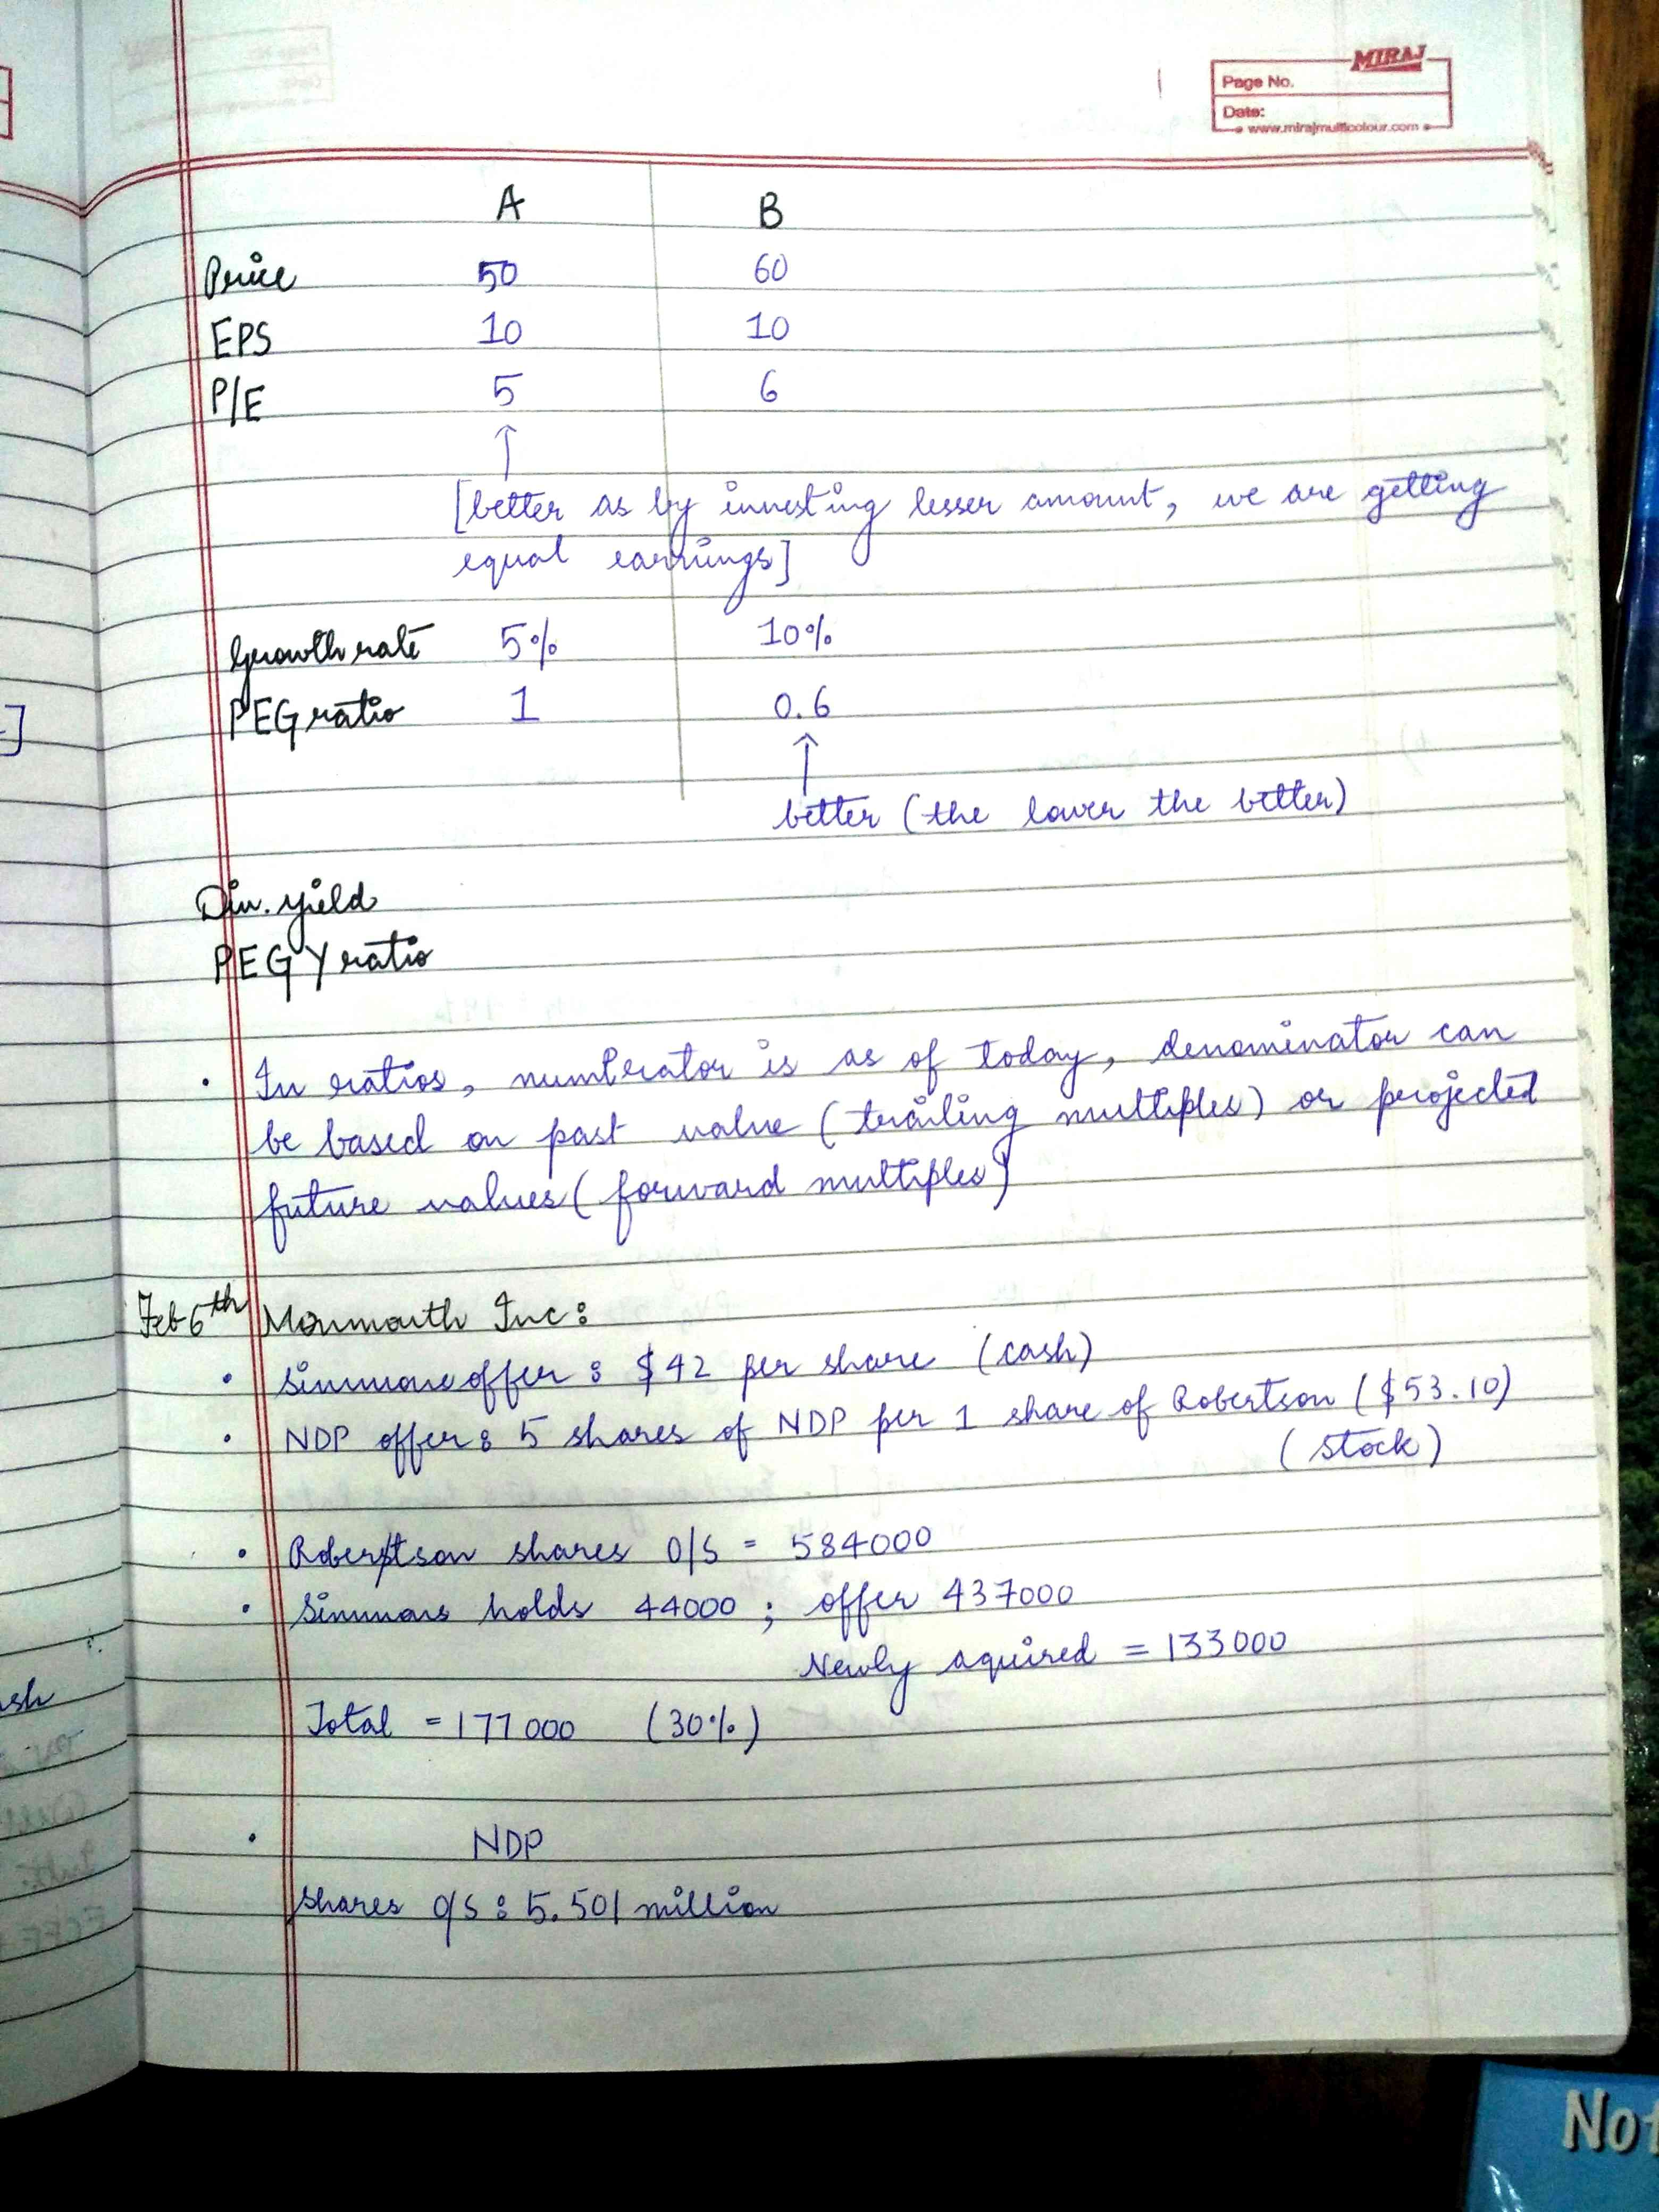 MIRAJ
Page No.
Date:
www.mirajmulticolour.com
A B
Price 50 60
EPS 10 10
P/E 5 6
[better as by investing lesser amount, we are getting
equal earnings]
Growth rate 5% 10%
PEG ratio 1 0.6
better (the lower the better)
Div. yield
PEGY ratio
• In ratios, numerator is as of today, denominator can
be based on past value (trailing multiples) or projected
future values (forward multiples)
Feb 6th Monmouth Inc:
• Simmons offer : $42 per share (cash)
• NDP offer : 5 shares of NDP per 1 share of Robertson ($53.10)
(stock)
• Robertson shares O/S = 584000
• Simmons holds 44000 ; offer 437000
Newly aquired = 133000
Total = 177000 (30%)
• NDP
Shares O/S : 5.501 million
ash
Not